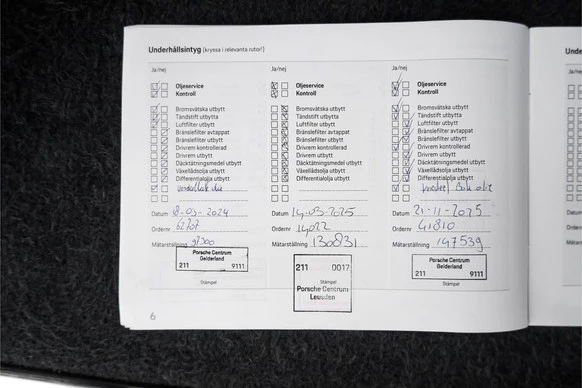 Underhållsintyg (kryssa i relevanta rutor!)
Ja/nej
Oljeservice
Kontroll
Bromsvätska utbytt
Tändstift utbytta
Luftfilter utbytt
Bränslefilter avtappat
Bränslefilter utbytt
Drivrem kontrollerad
Drivrem utbytt
Däcktätningsmedel utbytt
Växellådsolja utbytt
Differentialolja utbytt
Datum 18-03-2024
Ordernr 62707
Mätarställning 97300
Porsche Centrum
Gelderland
211 9111
Stämpel
Ja/nej
Oljeservice
Kontroll
Bromsvätska utbytt
Tändstift utbytta
Luftfilter utbytt
Bränslefilter avtappat
Bränslefilter utbytt
Drivrem kontrollerad
Drivrem utbytt
Däcktätningsmedel utbytt
Växellådsolja utbytt
Differentialolja utbytt
Datum 14-03-2025
Ordernr 14022
Mätarställning 130831
211 0017
Stämpel
Porsche Centrum
Leusden
Ja/nej
Oljeservice
Kontroll
Bromsvätska utbytt
Tändstift utbytta
Luftfilter utbytt
Bränslefilter avtappat
Bränslefilter utbytt
Drivrem kontrollerad
Drivrem utbytt
Däcktätningsmedel utbytt
Växellådsolja utbytt
Differentialolja utbytt
Datum 21-11-2025
Ordernr 41810
Mätarställning 147539
Porsche Centrum
Gelderland
211 9111
Stämpel
6
Ja/ne